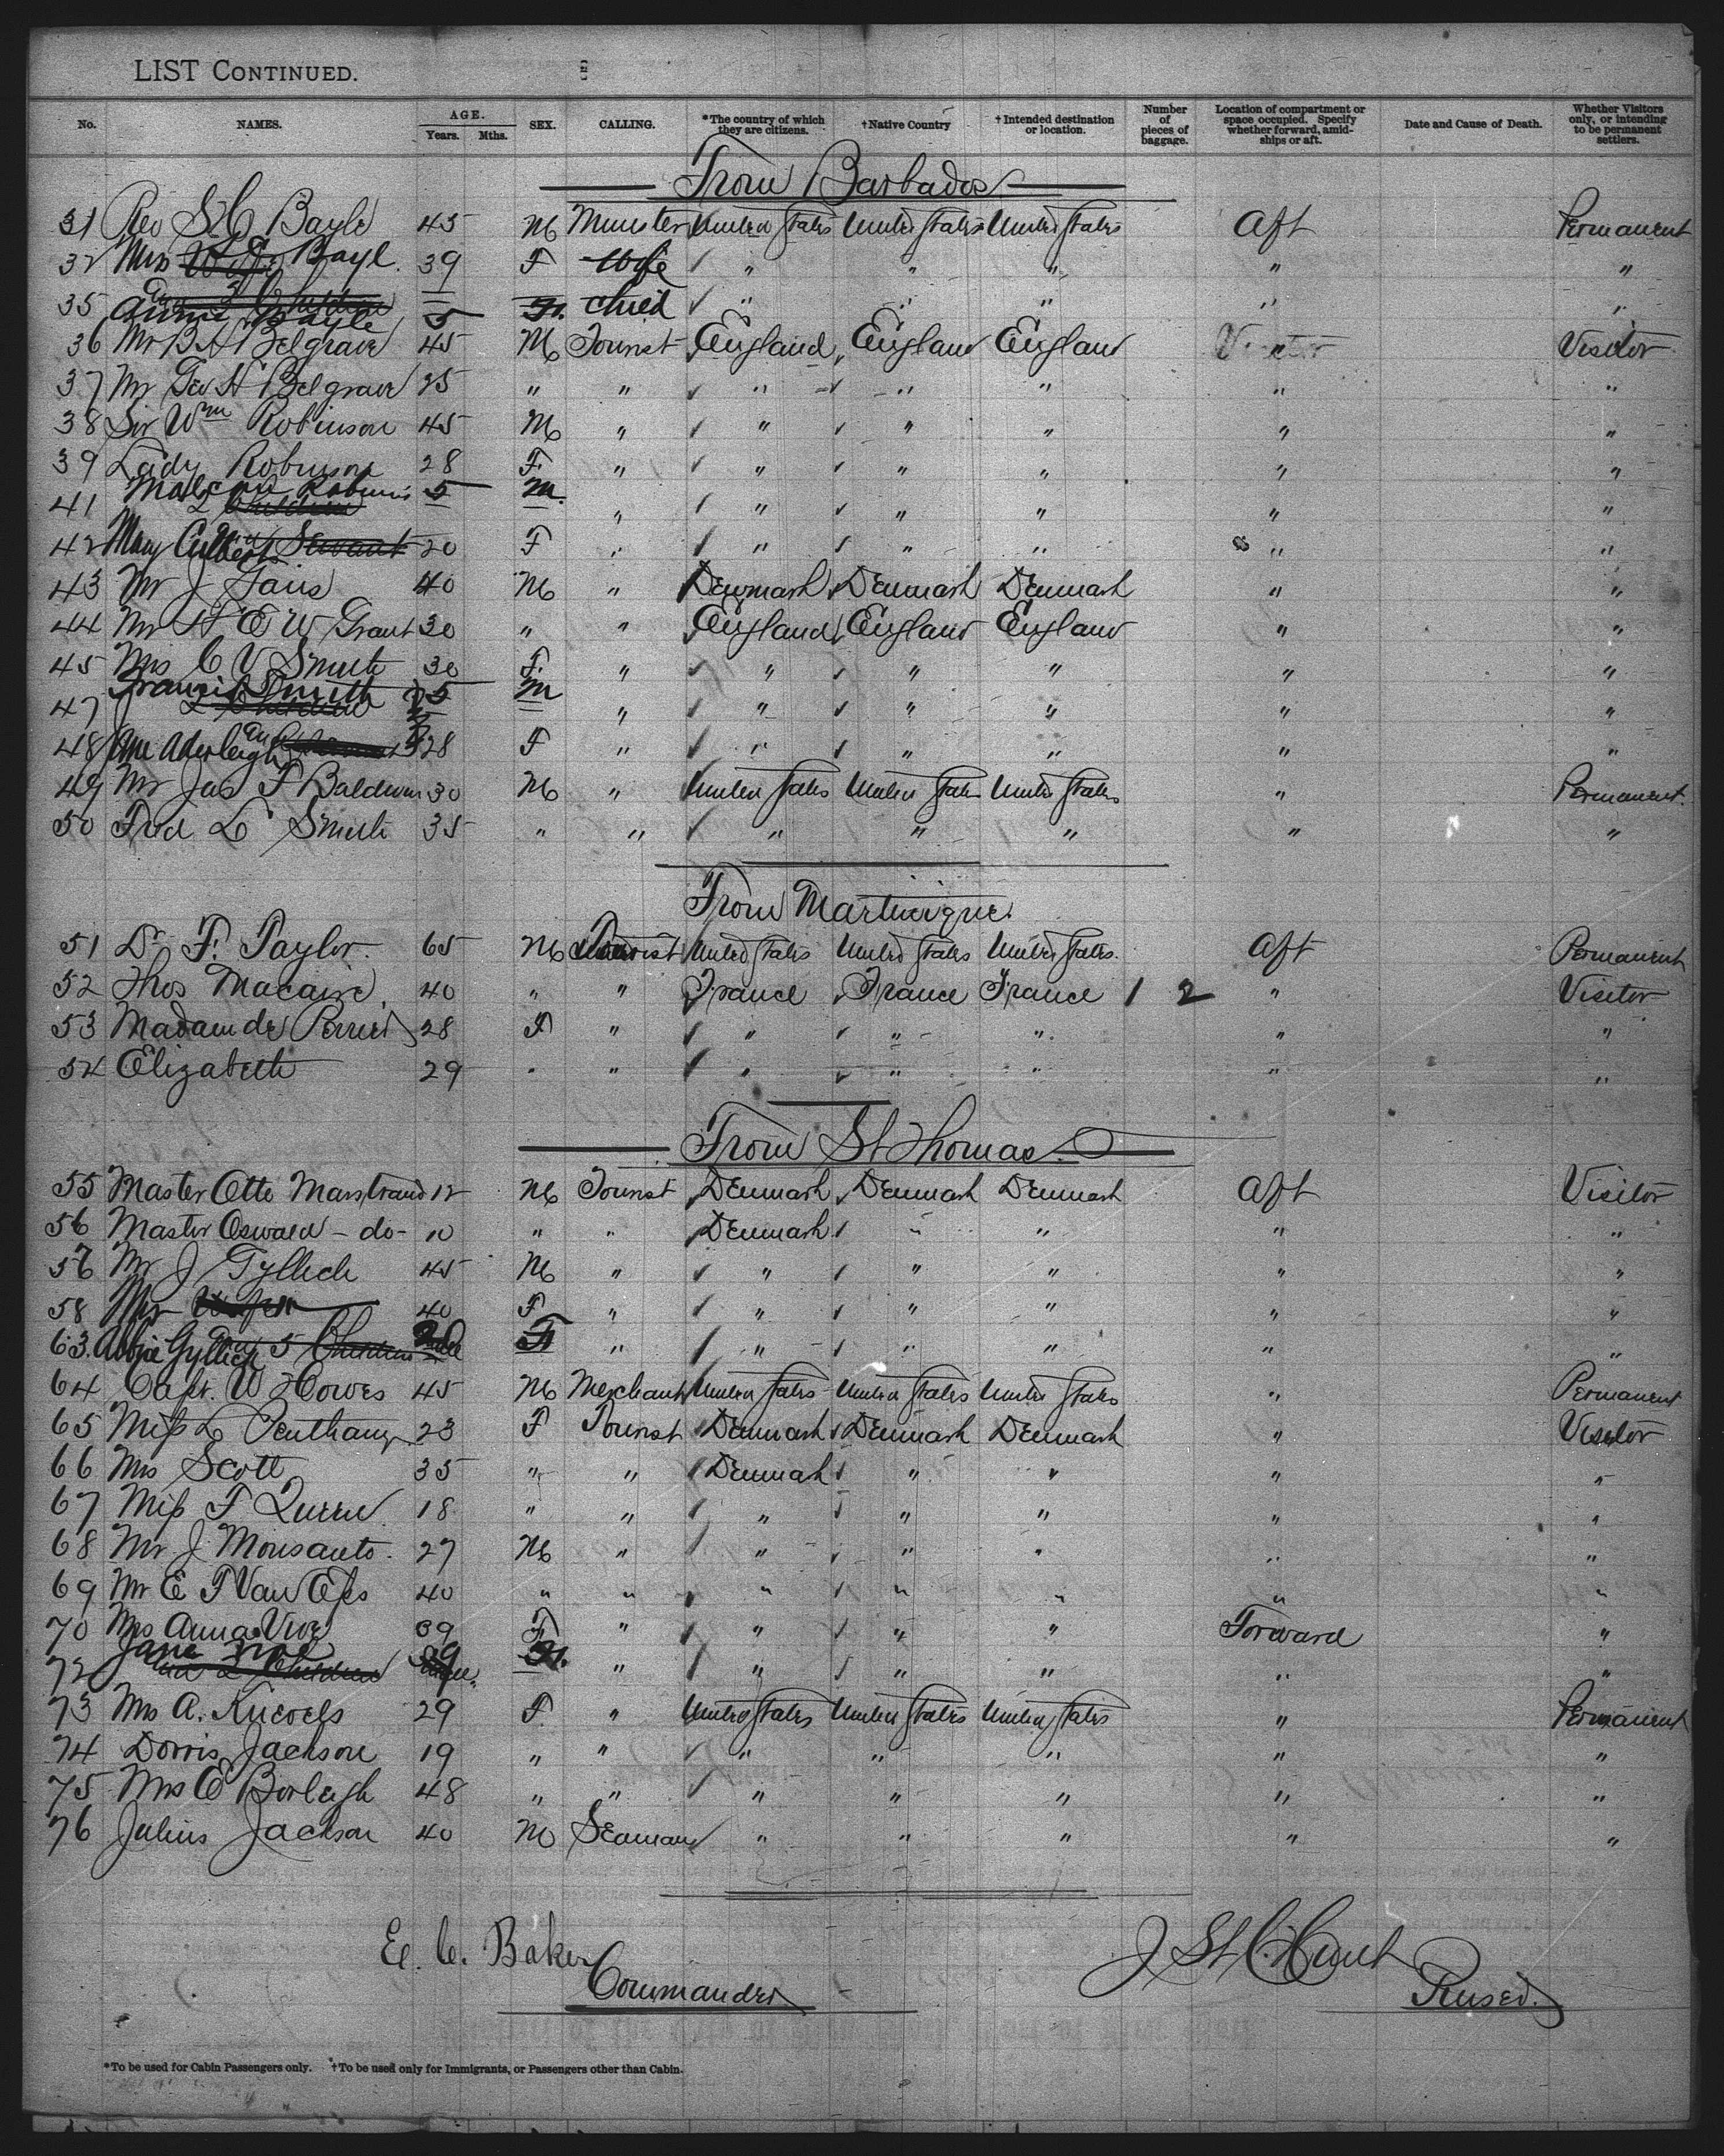 LIST CONTINUED.
No. NAMES. AGE. Years. Mths. SEX. CALLING. *The country of which they are citizens. †Native Country †Intended destination or location. Number of pieces of baggage. Location of compartment or space occupied. Specify whether forward, amidships or aft. Date and Cause of Death. Whether Visitors only, or intending to be permanent settlers.
From Barbados
31 Rev S C Bayle 45 M Minister United States United States United States Aft Permanent
32 Mrs Bayl. 39 F wife " " " " "
35 Annie Bayle 5 F. child " " " " "
36 Mr B A Belgrave 45 M Tourist England England England Visitor
37 Mr Geo H Belgrave 25 " " " " " " "
38 Sir Wm Robinson 45 M " " " " " "
39 Lady Robinson 28 F. " " " " " "
41 Robinson 2 Children 5 M. " " " " " "
42 Mary Servant 20 F " " " " " "
43 Mr J 40 M " Denmark Denmark Denmark " "
44 Mr H E W Grant 30 " " England England England " "
45 Mrs C V Smith 30 F. " " " " " "
47 Francis Smith 2 Children 5 M " " " " " "
48 28 F " " " " " "
49 Mr Jas F Baldwin 30 M " United States United States United States " Permanent.
50 Fred L Smith 35 " " " " " " "
From Martinique.
51 Dr F. Taylor. 65 M Tourist United States United States United States. Aft Permanent
52 Thos Macaire 40 " " France France France 1 2 " Visitor
53 Madam de 28 F " " " " " "
54 Elizabeth 29 " " " " " " "
From St Thomas.
55 Master Otto Marstrand 12 M Tourist Denmark Denmark Denmark Aft Visitor
56 Master Oswald - do - 10 " " Denmark " " " "
57 Mr J Gyllich 45 M " " " " " "
58 Mrs 40 F " " " " " "
63. Abbie Gyllich and 5 Children F " " " " " "
64 Capt. W Howes 45 M Merchant United States United States United States " Permanent
65 Miss L 23 F Tourist Denmark Denmark Denmark " Visitor
66 Mrs Scott 35 " " Denmark " " " "
67 Miss F 18 " " " " " " "
68 Mr J Monsanto. 27 M " " " " " "
69 Mr E F Van Eps 40 " " " " " " "
70 Mrs Anna 39 F " " " " Forward "
72 Jane and 2 Children " " " " " "
73 Mrs A. 29 F. " United States United States United States " Permanent
74 Dorris Jackson 19 " " " " " " "
75 Mrs E Borleigh 48 " " " " " " "
76 Julius Jackson 40 M Seaman " " " " "
E. C. Baker
Commander
J St C. Hunt
Purser.
*To be used for Cabin Passengers only. †To be used only for Immigrants, or Passengers other than Cabin.